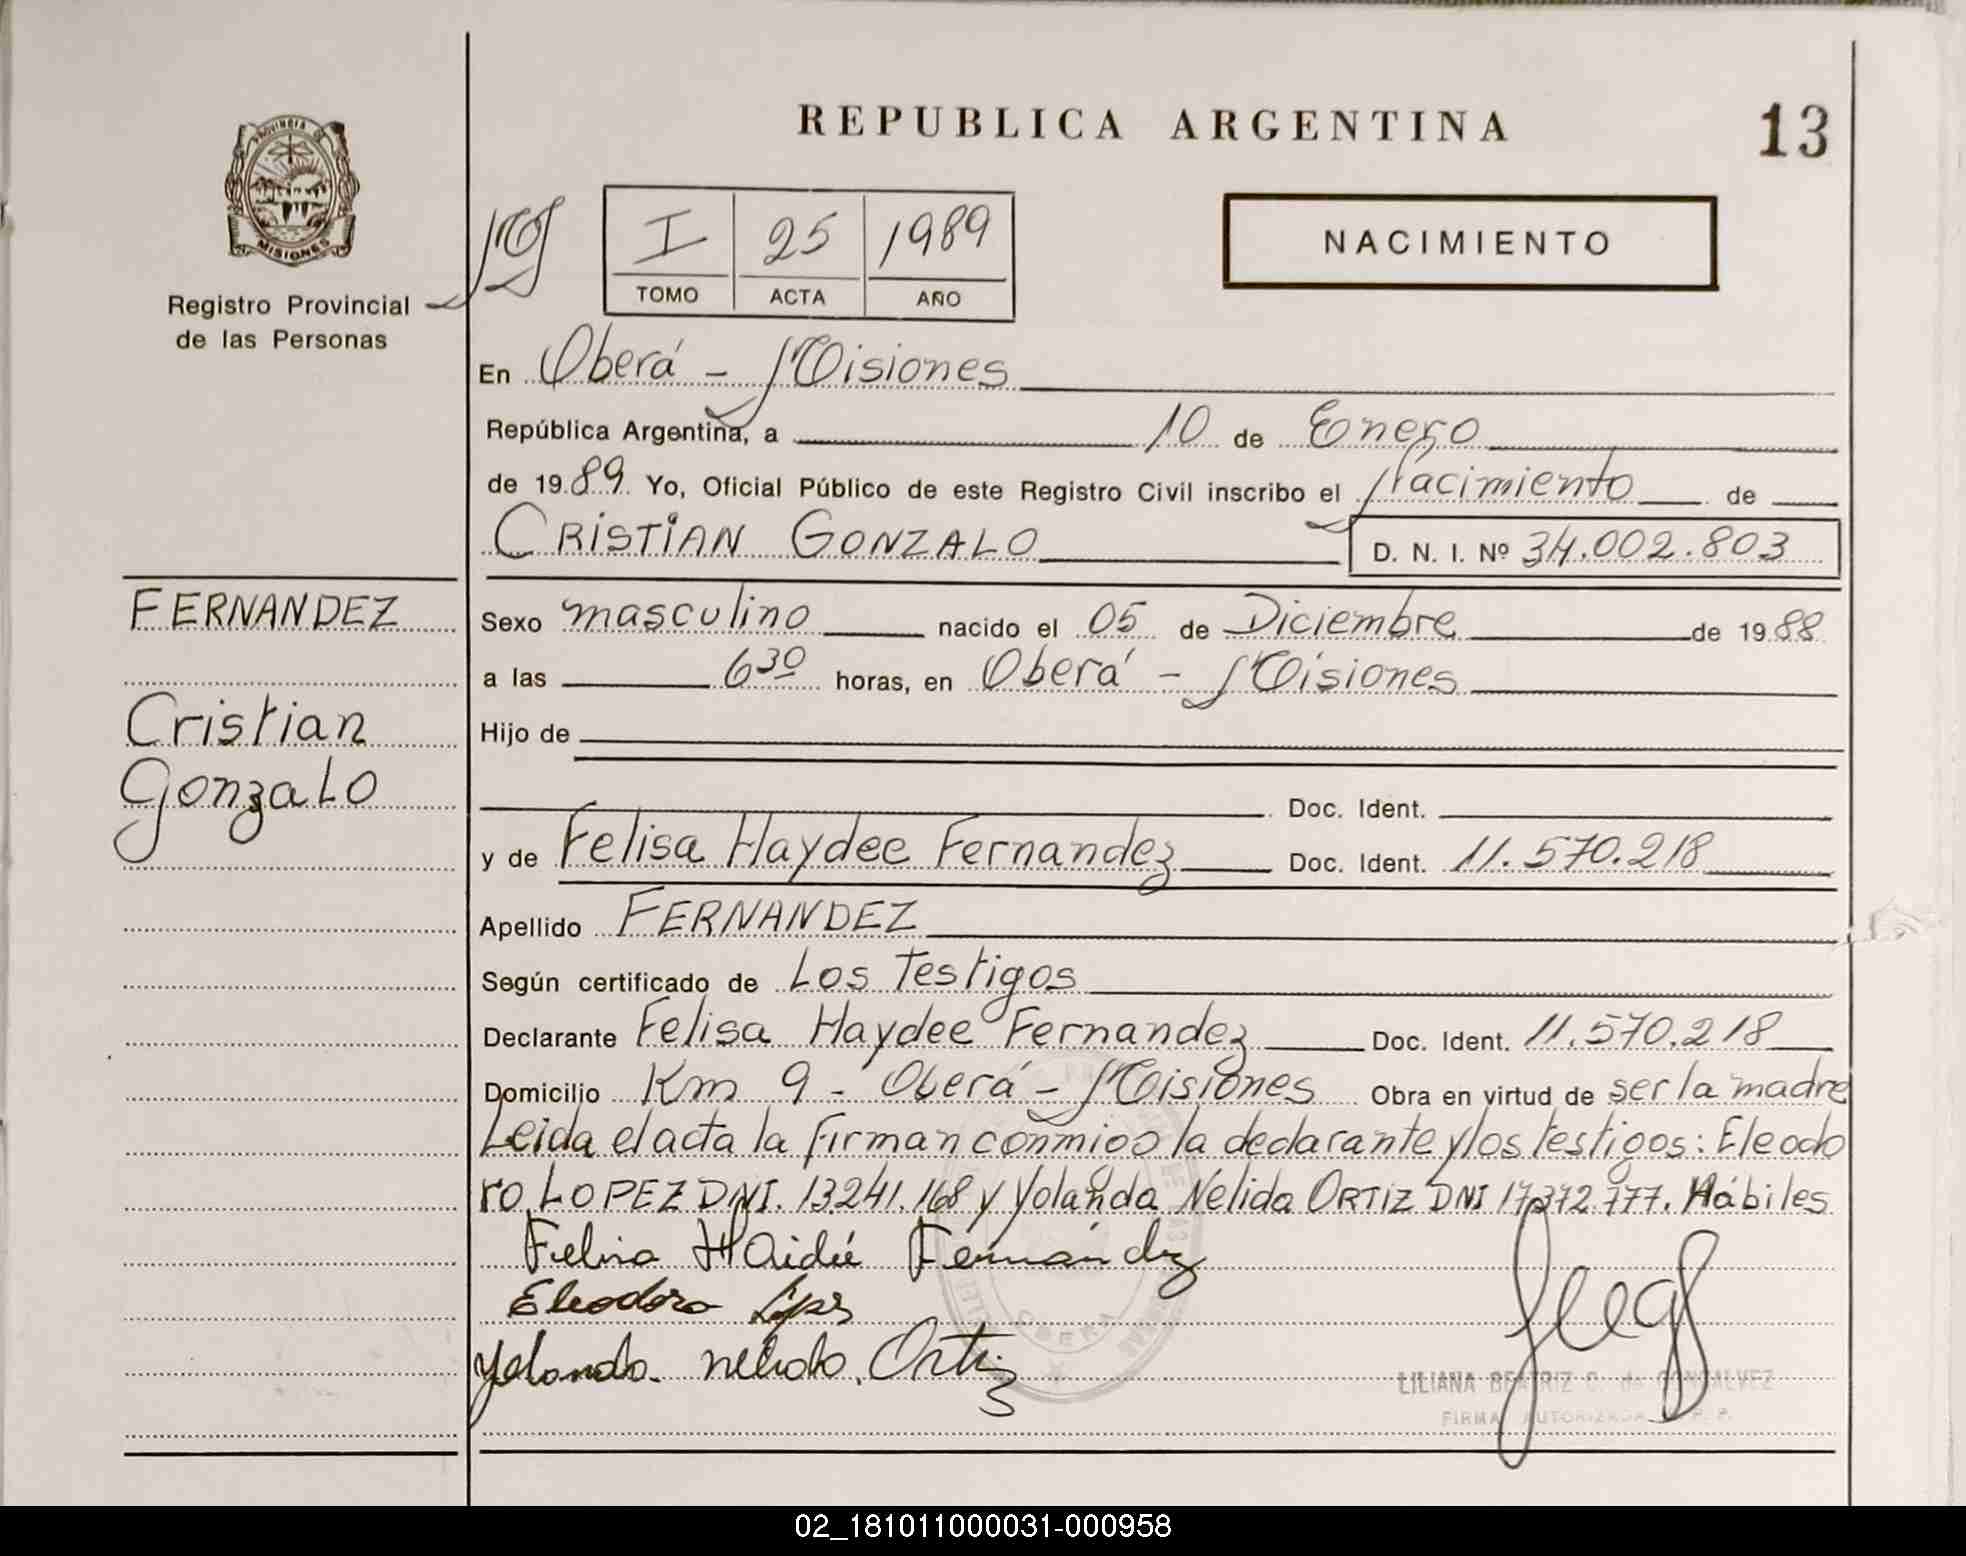 REPUBLICA ARGENTINA
13
PROVINCIA DE
MISIONES
Registro Provincial
de las Personas
I 25 1989
TOMO ACTA AÑO
NACIMIENTO
En Oberá - Misiones
República Argentina, a 10 de Enero
de 1989 Yo, Oficial Público de este Registro Civil inscribo el Nacimiento de
CRISTIAN GONZALO D. N. I. Nº 34.002.803
FERNANDEZ
Cristian
Gonzalo
Sexo masculino nacido el 05 de Diciembre de 1988
a las 6 30 horas, en Oberá - Misiones
Hijo de
Doc. Ident.
y de Felisa Haydee Fernandez Doc. Ident. 11.570.218
Apellido FERNANDEZ
Según certificado de Los Testigos
Declarante Felisa Haydee Fernandez Doc. Ident. 11.570.218
Domicilio Km 9 - Oberá - Misiones Obra en virtud de ser la madre
Leida el acta la firman conmigo la declarante y los testigos: Eleodo
ro LOPEZ DNI. 13241.168 y Yolanda Nelida ORTIZ DNI 17372.777. Hábiles
Felisa Haideé Fernández
Eleodoro López
Yolanda Nelida Ortiz
OBERA
LILIANA BEATRIZ C. de GONSALVEZ
FIRMA AUTORIZADA R. P. P.
02_181011000031-000958